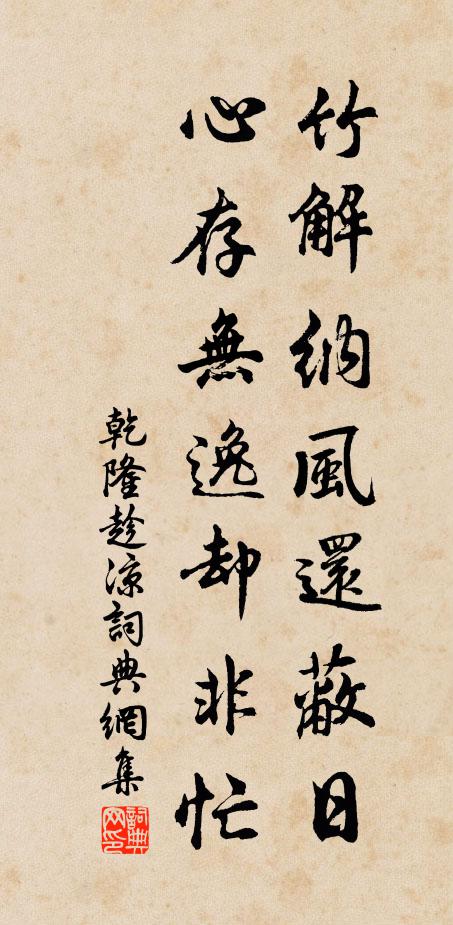 竹解納風還蔽日
心存無逸却非忙
乾隆趁涼詞典網集
詞典網印